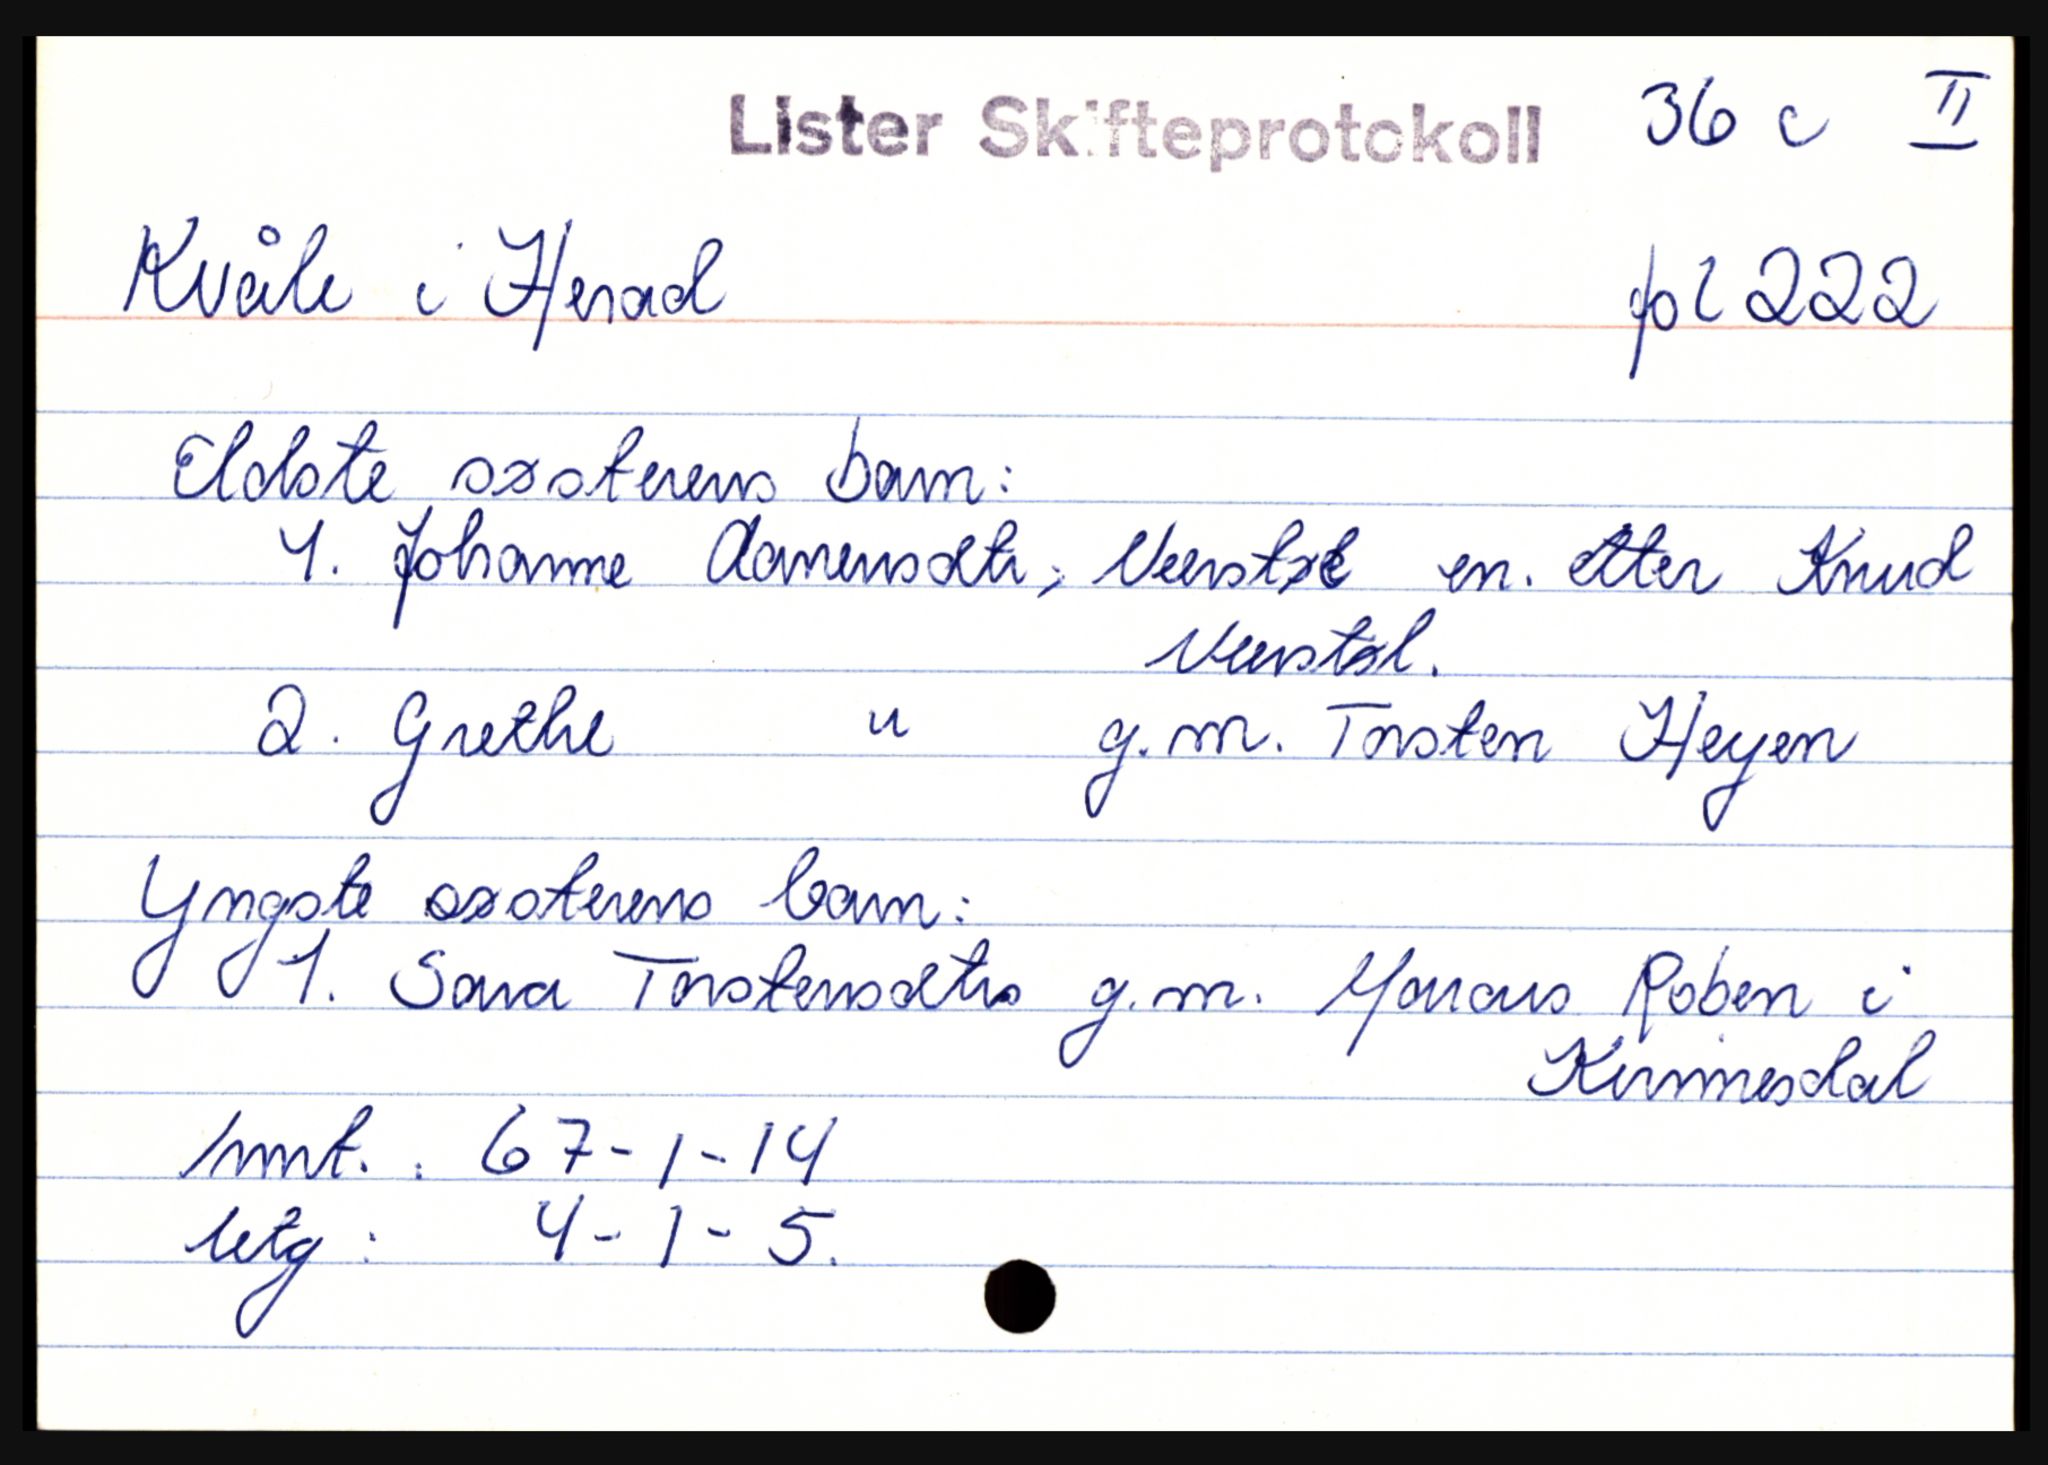 Lister Skifteprotokoll 36 c II
Kvåle i Herad fol 222
Eldste søsterens barn:
1. Johanne Aanensdtr, Veerstøl en. etter Knud
Veerstøl.
2. Grethe " g.m. Torsten Heyen
Yngste søsterens barn:
1. Sara Torstensdtr g.m. Marcus Roben i
Kirmesdal
Innt. : 67-1-14
Utg : 4-1-5.